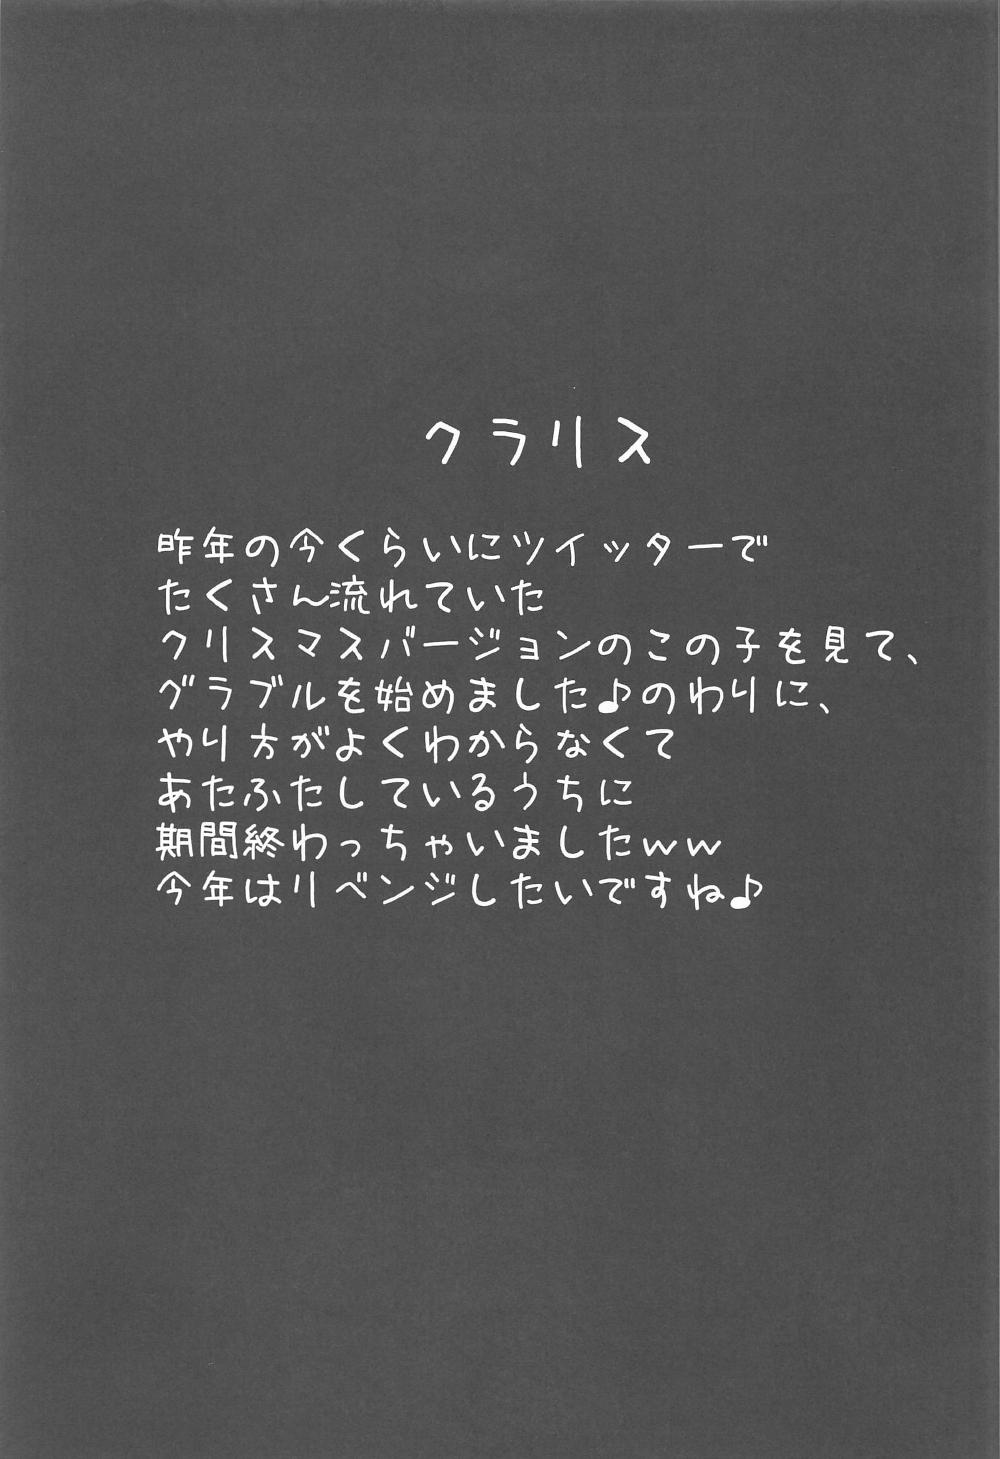 クラリス
昨年の今くらいにツイッターで
たくさん流れていた
クリスマスバージョンのこの子を見て、
グラブルを始めました♪のわりに、
やり方がよくわからなくて
あたふたしているうちに
期間終わっちゃいましたww
今年はリベンジしたいですね♪